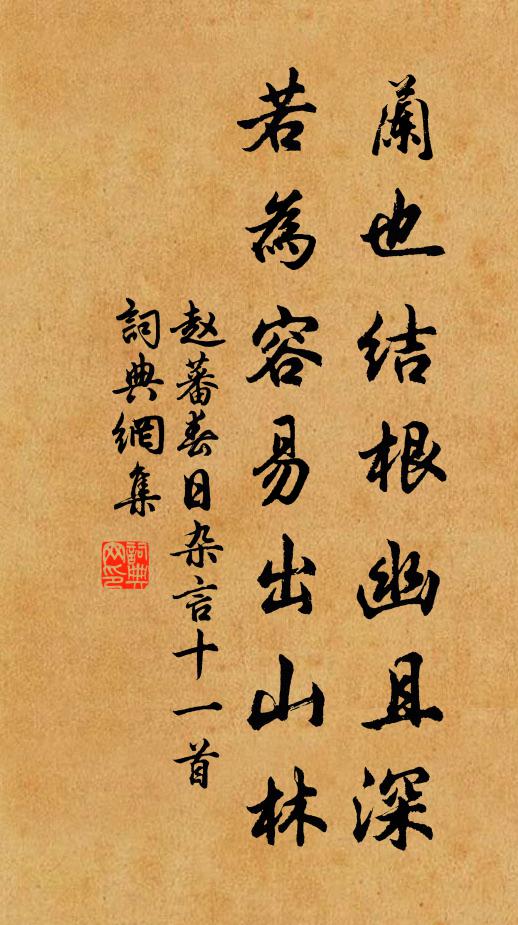 蘭也结根幽且深
若為容易出山林
赵蕃春日杂言十一首
詞典網集
詞典网印